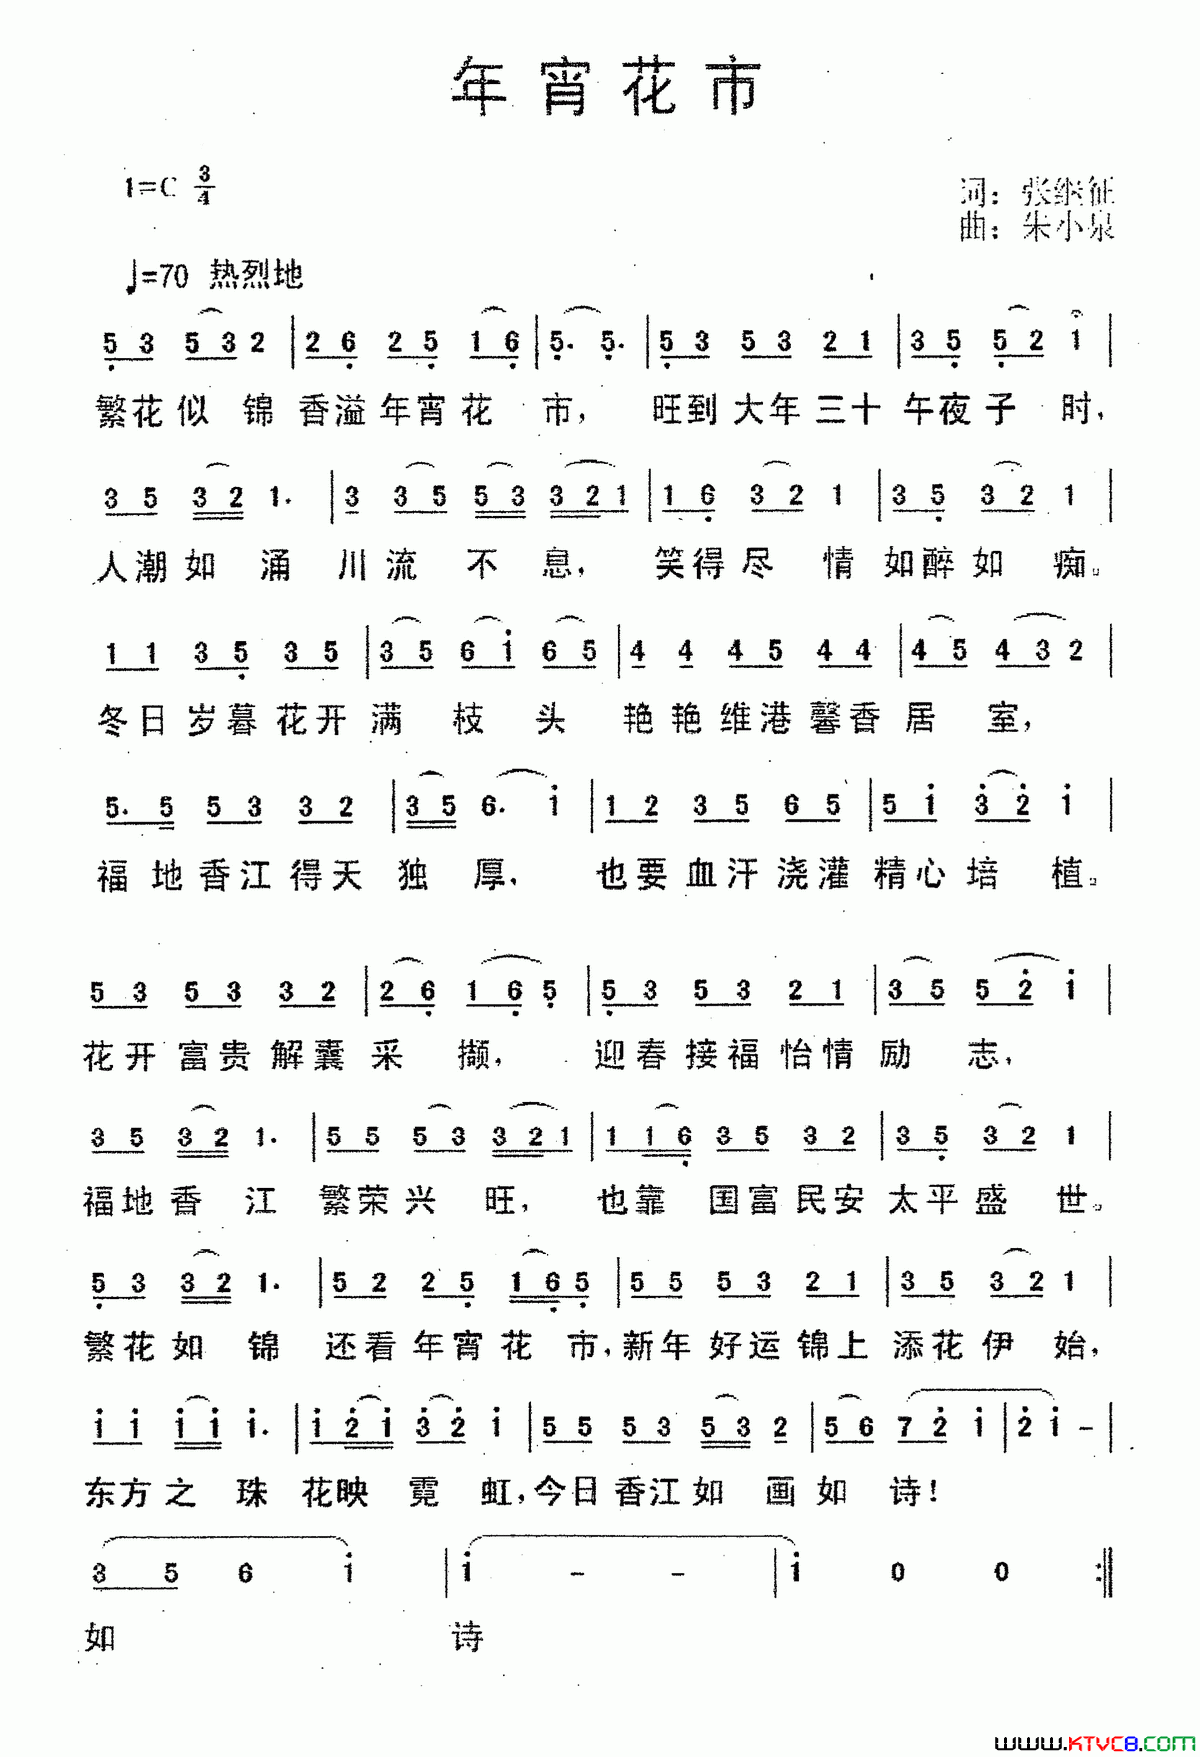 年宵花市
1=C 3/4
词：张继征
曲：朱小泉
♩=70 热烈地
5 3 5 3 2 | 2 6 2 5 1 6 | 5. 5. | 5 3 5 3 2 1 | 3 5 5 2 1 |
繁花似锦香溢年宵花市，旺到大年三十午夜子时，
3 5 3 2 1. | 3 3 5 5 3 3 2 1 | 1 6 3 2 1 | 3 5 3 2 1 |
人潮如涌川流不息，笑得尽情如醉如痴。
1 1 3 5 3 5 | 3 5 6 i 6 5 | 4 4 4 5 4 4 | 4 5 4 3 2 |
冬日岁暮花开满枝头艳艳维港馨香居室，
5. 5 5 3 3 2 | 3 5 6. i | 1 2 3 5 6 5 | 5 i 3 2 i |
福地香江得天独厚，也要血汗浇灌精心培植。
5 3 5 3 3 2 | 2 6 1 6 5 | 5 3 5 3 2 1 | 3 5 5 2 i |
花开富贵解囊采撷，迎春接福怡情励志，
3 5 3 2 1. | 5 5 5 3 3 2 1 | 1 1 6 3 5 3 2 | 3 5 3 2 1 |
福地香江繁荣兴旺，也靠国富民安太平盛世。
5 3 3 2 1. | 5 2 2 5 1 6 5 | 5 5 5 3 2 1 | 3 5 3 2 1 |
繁花如锦还看年宵花市，新年好运锦上添花伊始，
i i i i i. | i 2 i 3 2 i | 5 5 5 3 5 3 2 | 5 6 7 2 i | 2 i - |
东方之珠花映霓虹，今日香江如画如诗！
3 5 6 i | i - - | i 0 0 :||
如诗
www.KTVC8.com